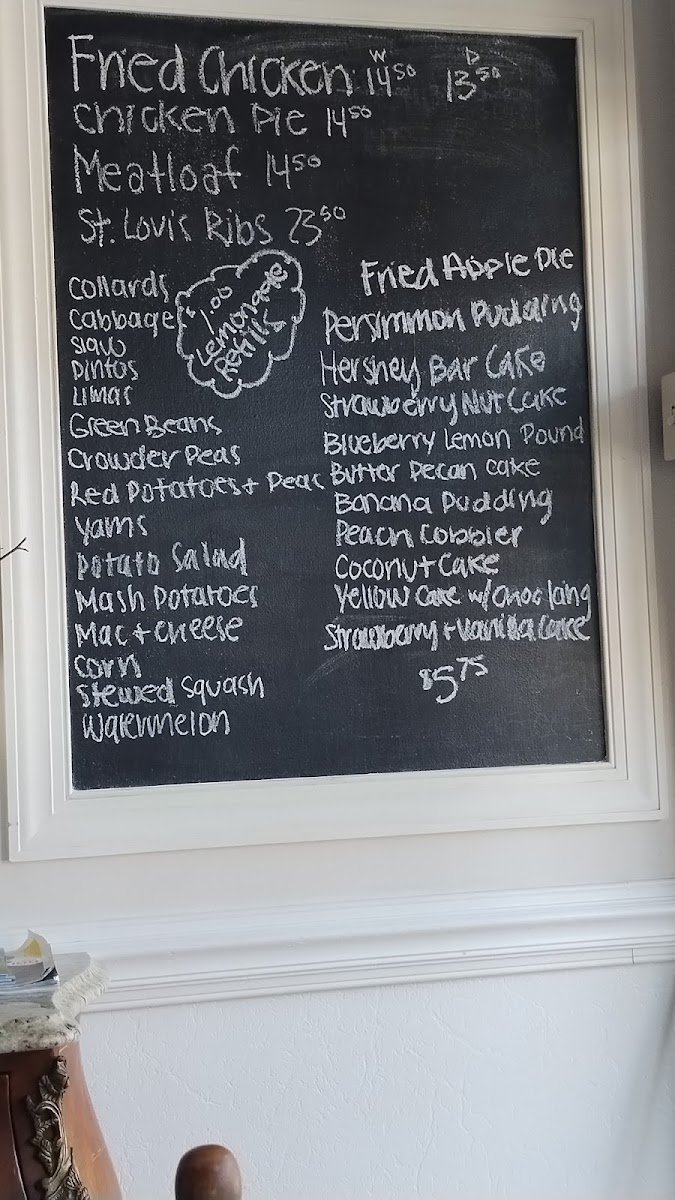 Fried Chicken W 14 50 D 13 50
Chicken Pie 14 50
Meatloaf 14 50
St. Louis Ribs 23 50
Collards
Cabbage
Slaw
Pintos
Limas
Green Beans
Crowder Peas
Red Potatoes + Peas
Yams
Potato Salad
Mash Potatoes
Mac + Cheese
Corn
Stewed Squash
Watermelon
$1.00
Lemonade
Refills
Fried Apple Pie
Persimmon Pudding
Hershey Bar Cake
Strawberry Nut Cake
Blueberry Lemon Pound
Butter Pecan Cake
Banana Pudding
Peach Cobbler
Coconut Cake
Yellow Cake w/ Choc Icing
Strawberry + Vanilla Cake
$5 75